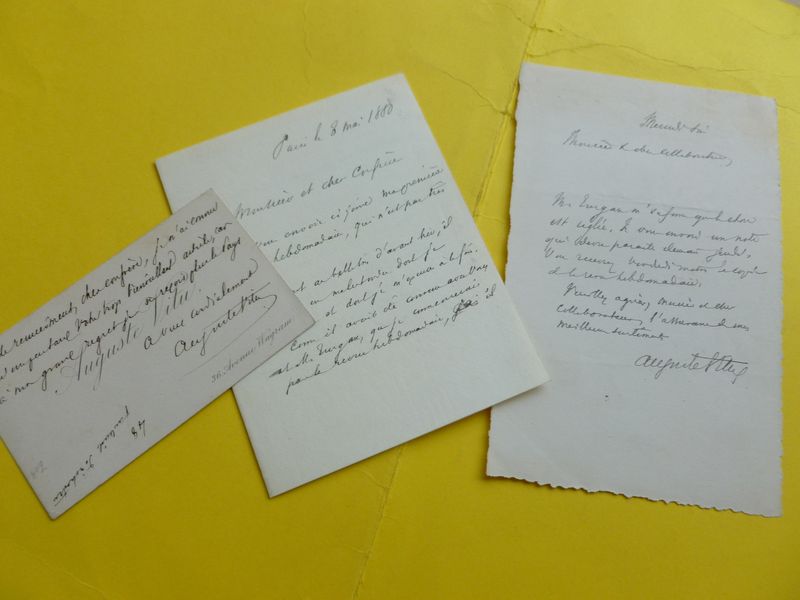 remerciement, cher confrère, je n'ai connu
qu'un par votre trop bienveillant article, car
à mon grand regret je ne reçois plus le Pays
Auguste Vitu
à vous cordialement
Auguste Vitu
36, Avenue Wagram
48
Paris le 8 mai 1880
Monsieur et cher Confrère
vous envoie ci joint ma première
hebdomadaire, qui n'est pas très
au bulletin d'avant hier, il
un malentendu dont je
et dont je m'excuse à la fois.
Comme il avait été convenu avec Vous
et Mr Turgan, que je commencerais
par la revue hebdomadaire, il
Mercredi soir
Monsieur & cher collaborateur,
Mr Turgan m'informe que la chose
est réglée. Il vous envoie une note
qui devra paraître demain jeudi.
Vous recevrez Vendredi matin la copie
de la revue hebdomadaire.
Veuillez agréer, monsieur et cher
collaborateur, l'assurance de mes
meilleurs sentiments
Auguste Vitu